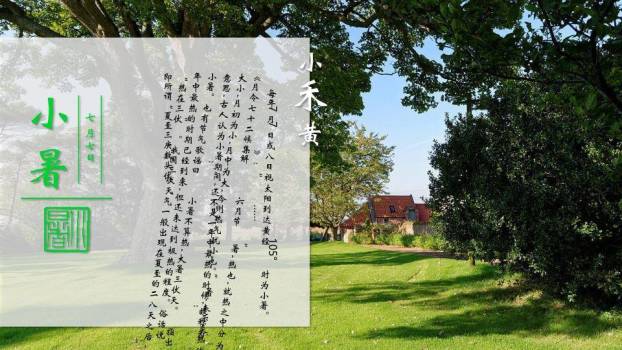 小禾黄
每年 月 日或八日视太阳到达黄经105°时为小暑。
《月令七十二候集解》
六月节
……
暑，热也，就热之中分为
大小，月初为小，月中为大，今则热气犹小也。
意思，古人认为小暑期间，还不是一年中最热的时候，
小暑。也有节气歌谣曰
小暑不算热，大暑三伏天。
指出
年中最热的时期已经到来，但还未达到极热的程度。俗话说
热在三伏
我国三伏天气一般出现在夏至的二八天之后
即所谓夏至三庚数头伏
七月七日
小暑
小暑